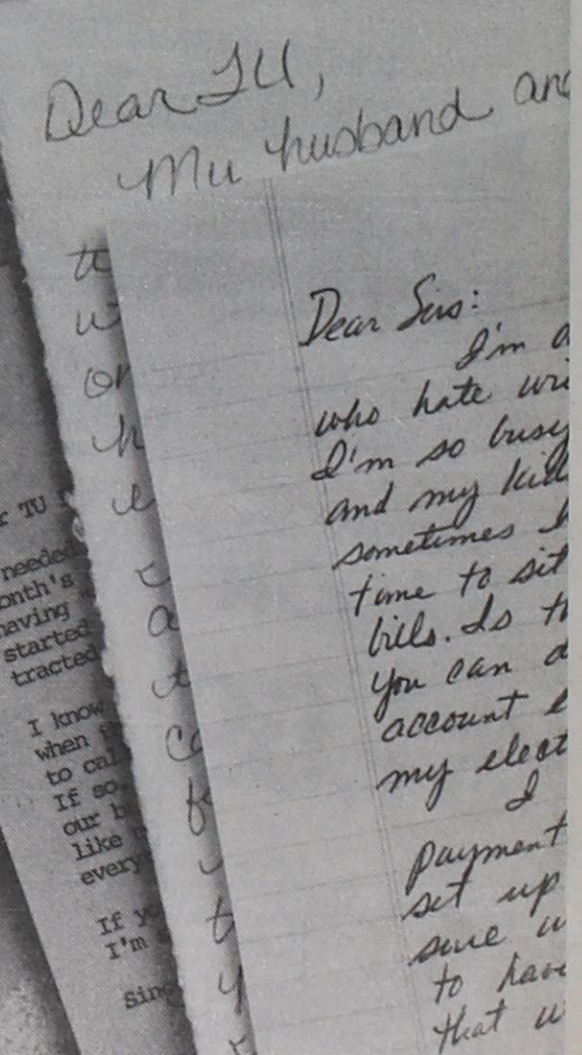 Dear TU,
My husband and
Dear Sirs:
I'm a
who hate wri
I'm so busy
and my kid
sometimes
time to sit
bills. Is th
you can d
account
my elect
I
payment
set up
sure w
to have
that w
r TU
needed
onth's
having
started
tracted
I know
when i
to cal
If so
our b
like
every
If yo
I'm
Sinc